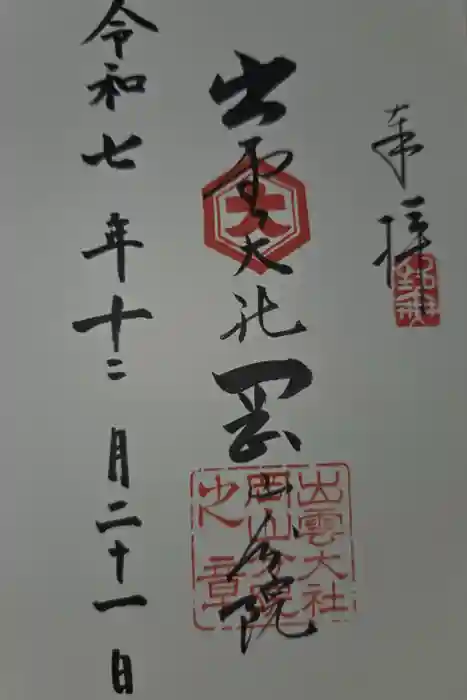 奉拝
出雲大社岡山分院
大
出雲大社
岡山分院
之章
令和七年十二月二十一日